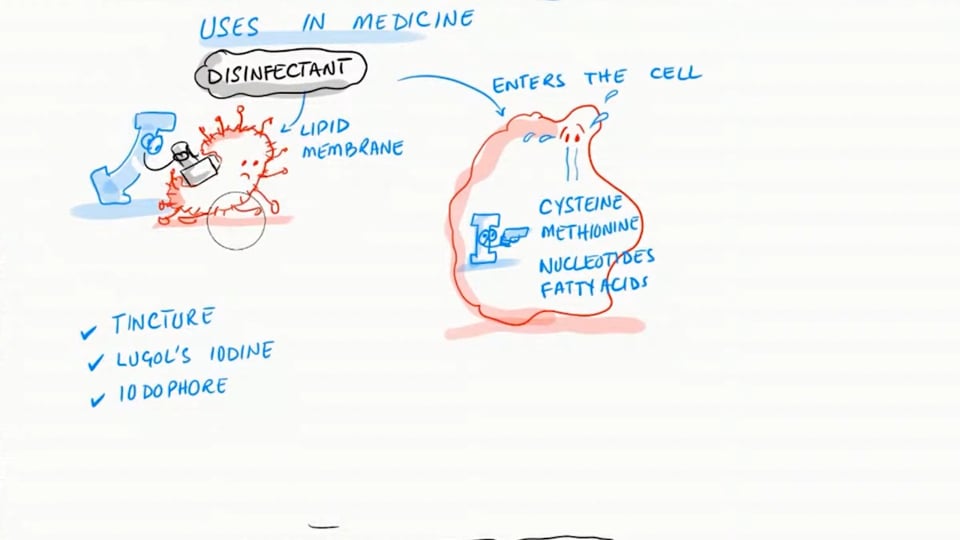 USES IN MEDICINE
DISINFECTANT
LIPID
MEMBRANE
ENTERS THE CELL
CYSTEINE
METHIONINE
NUCLEOTIDES
FATTY ACIDS
✓ TINCTURE
✓ LUGOL'S IODINE
✓ IODOPHORE